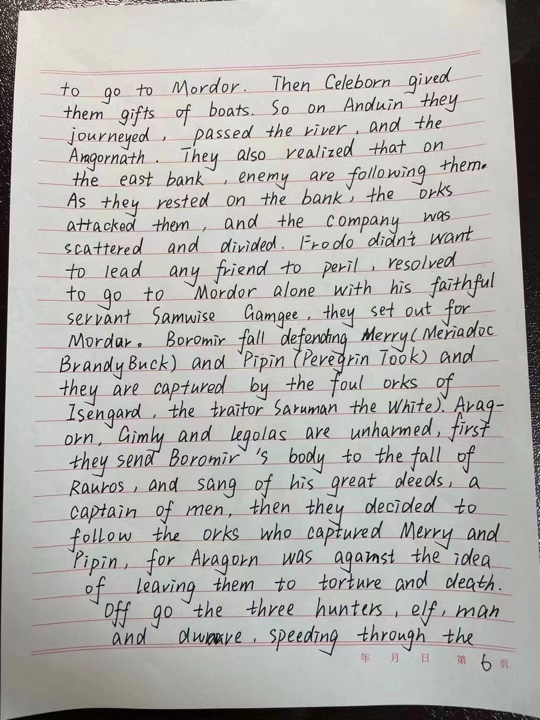 to go to Mordor. Then Celeborn gived
them gifts of boats. So on Anduin they
journeyed, passed the river, and the
Angornath. They also realized that on
the east bank, enemy are following them.
As they rested on the bank, the orks
attacked them, and the company was
scattered and divided. Frodo didn't want
to lead any friend to peril, resolved
to go to Mordor alone with his faithful
servant Samwise Gamgee, they set out for
Mordar. Boromir fall defending Merry (Meriadoc
BrandyBuck) and Pipin (Peregrin Took) and
they are captured by the foul orks of
Isengard, the traitor Saruman the White). Arag-
orn, Gimly and legolas are unharmed, first
they send Boromir's body to the fall of
Rauros, and sang of his great deeds, a
captain of men, then they decided to
follow the orks who captured Merry and
Pipin, for Aragorn was against the idea
of leaving them to torture and death.
Off go the three hunters, elf, man
and, speeding through the
年 月 日 第 6 页